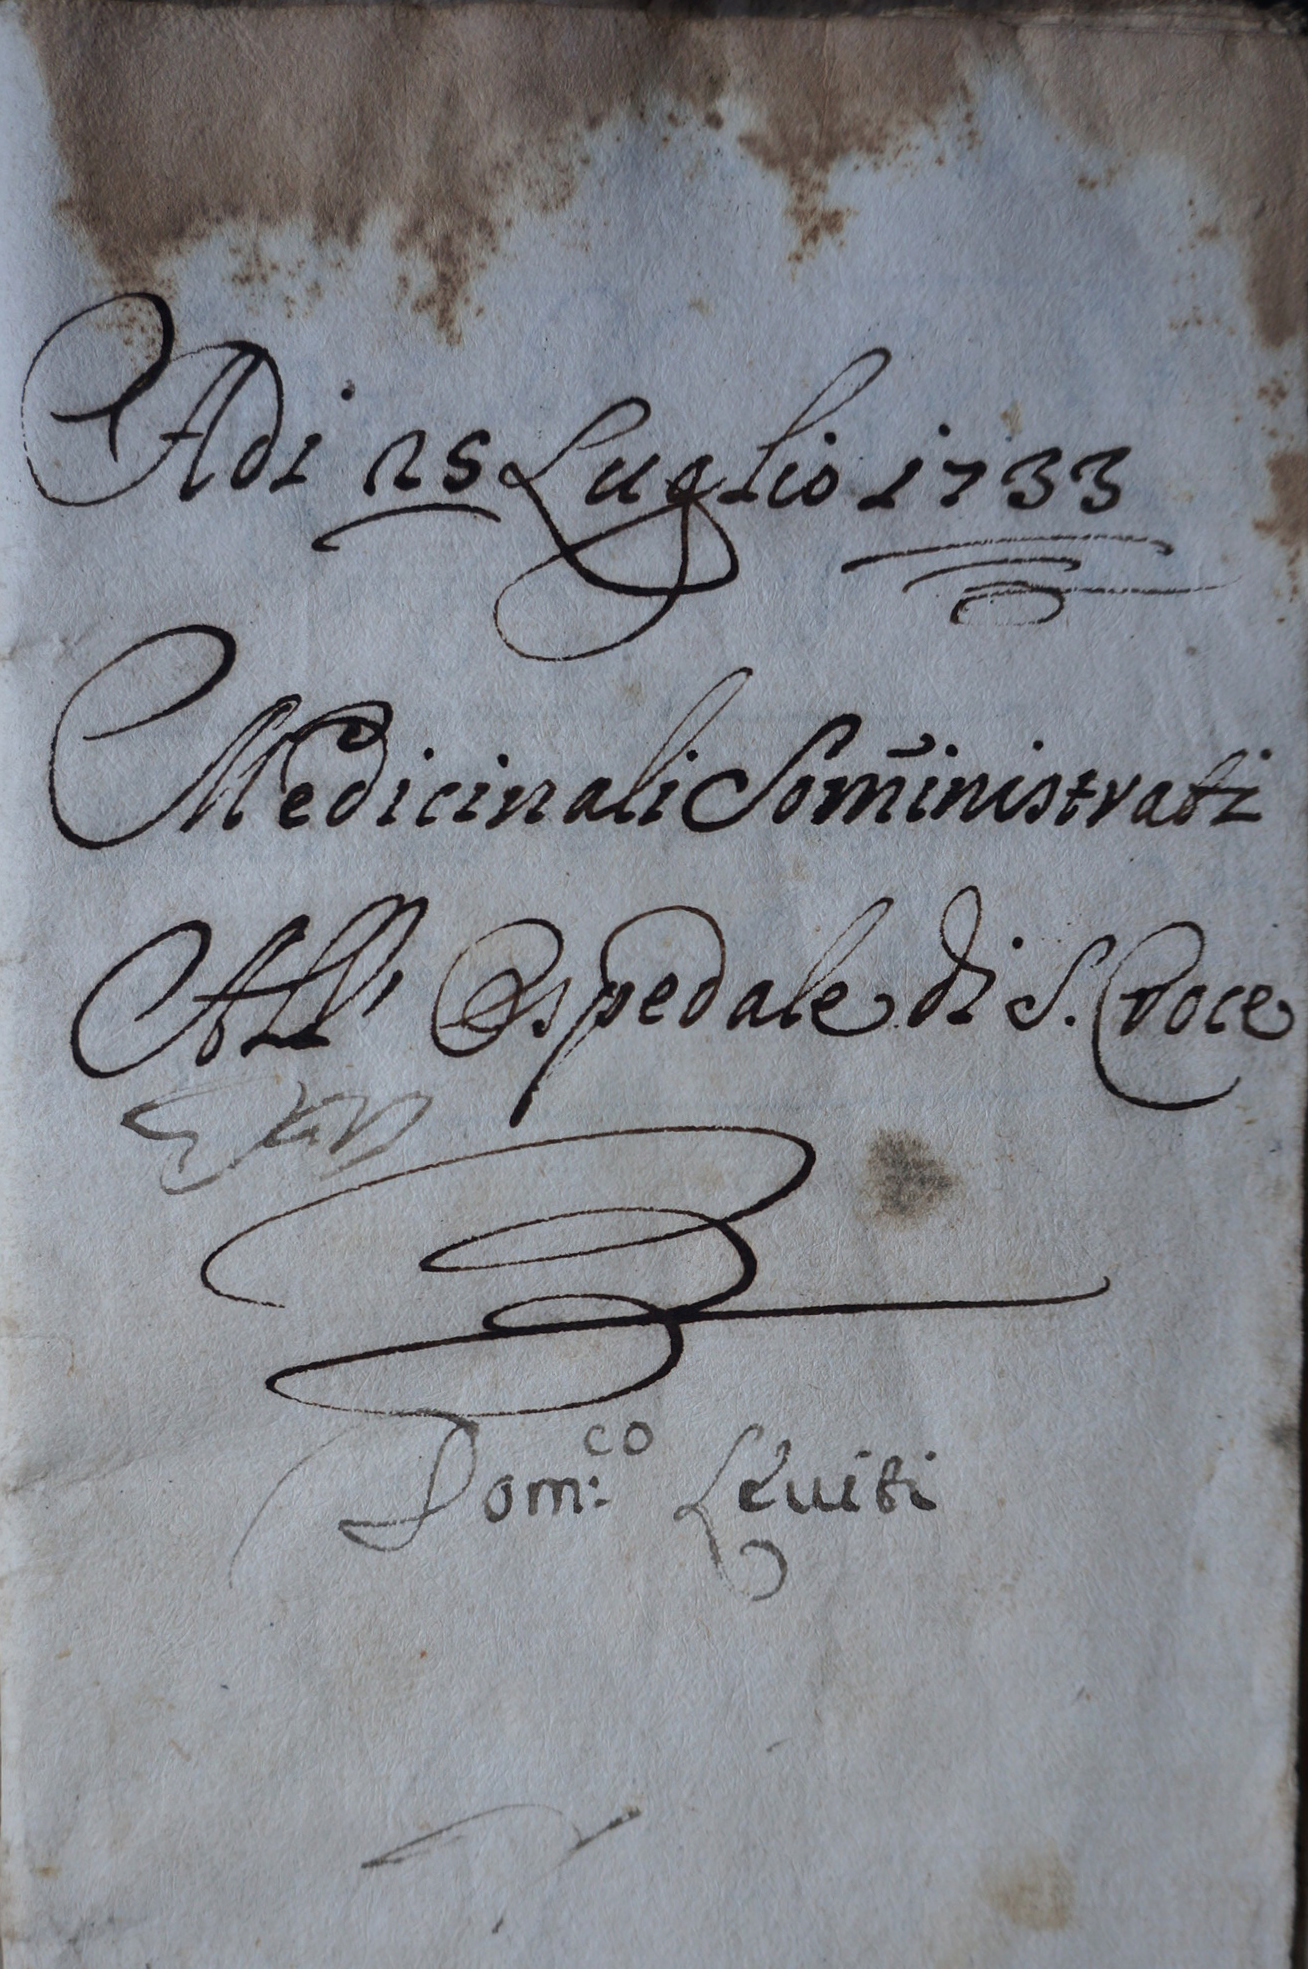 Adi 25 Luglio 1733
Medicinali Som̃inistrati
All' Ospedale di S. Croce
Dom:co Leuiti